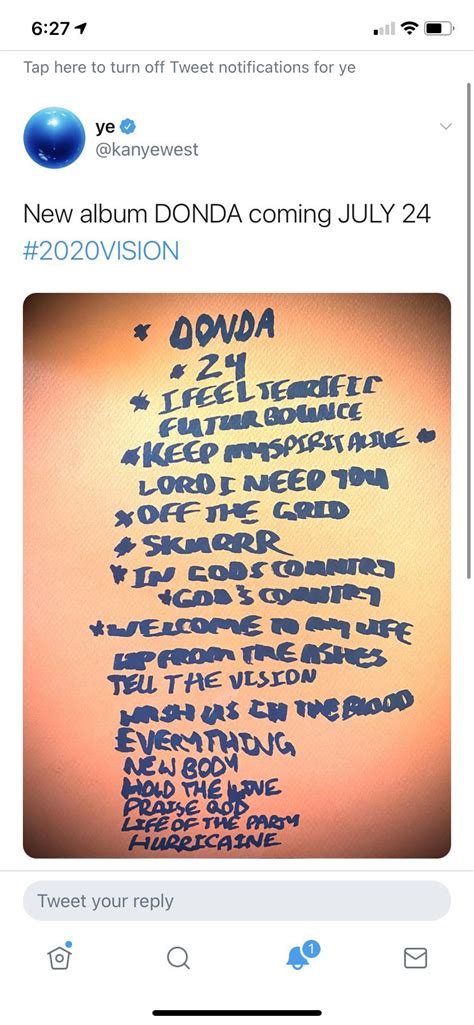 6:27
Tap here to turn off Tweet notifications for ye
ye
@kanyewest
New album DONDA coming JULY 24
#2020VISION
* DONDA
* 24
* I FEEL TERRIFIC
FUTUR BOUNCE
* KEEP MY SPIRIT ALIVE *
LORD I NEED YOU
* OFF THE GRID
* SKURRR
* IN GODS COUNTRY
* GOD'S COUNTRY
* WELCOME TO MY LIFE
UP FROM THE ASHES
TELL THE VISION
WASH US IN THE BLOOD
EVERYTHING
NEW BODY
HOLD THE LINE
PRAISE GOD
LIFE OF THE PARTY
HURRICAINE
Tweet your reply
1